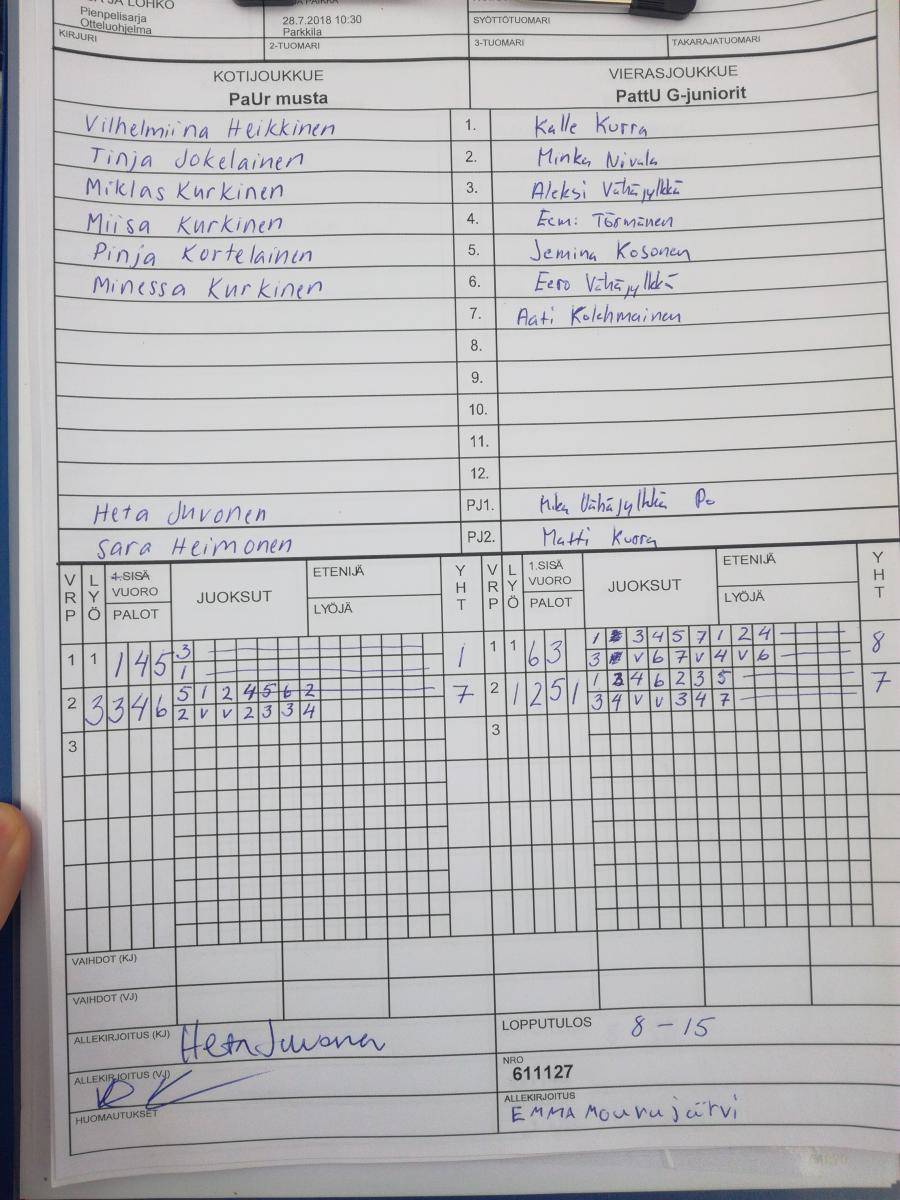 JA LOHKO
Pienpelisarja
Otteluohjelma
28.7.2018 10:30
Parkkila
SYÖTTÖTUOMARI
KIRJURI
2-TUOMARI
3-TUOMARI
TAKARAJATUOMARI
KOTIJOUKKUE
VIERASJOUKKUE
PaUr musta
PattU G-juniorit
Vilhelmiina Heikkinen 1. Kalle Kurra
Tinja Jokelainen 2. Minka Nivala
Miklas Kurkinen 3. Aleksi Vähäjylkkä
Miisa Kurkinen 4. Eemi Törmänen
Pinja Kortelainen 5. Jemina Kosonen
Minessa Kurkinen 6. Eero Vähäjylkkä
7. Aati Kolehmainen
8.
9.
10.
11.
12.
Heta Juvonen PJ1. Mika Vähäjylkkä
Sara Heimonen PJ2. Matti Kurra
VRP LYÖ 1.SISÄ VUORO PALOT JUOKSUT ETENIJÄ LYÖJÄ YHT VRP LYÖ 1.SISÄ VUORO PALOT JUOKSUT ETENIJÄ LYÖJÄ YHT
1 1 1 4 5 3 1 1 1 6 3 1 3 4 5 7 1 2 4 8
1 3 v 6 7 v 4 v 6
2 3 3 4 6 5 1 2 4 5 6 2 7 2 1 2 5 1 1 4 6 2 3 5 7
2 v v 2 3 3 4 3 4 v v 3 4 7
3 3
VAIHDOT (KJ)
VAIHDOT (VJ)
ALLEKIRJOITUS (KJ) Heta Juvonen
LOPPUTULOS 8 - 15
ALLEKIRJOITUS (VJ)
NRO
611127
HUOMAUTUKSET
ALLEKIRJOITUS
EMMA Mourujärvi